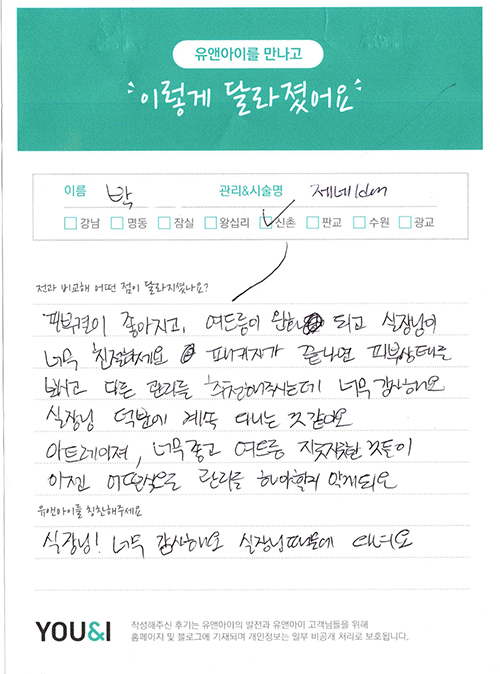 유앤아이를 만나고
이렇게 달라졌어요
이름 박 관리&시술명 제네
강남 명동 잠실 왕십리 신촌 판교 수원 광교
전과 비교해 어떤 점이 달라지셨나요?
피부결이 좋아지고, 여드름이 완화 되고 실장님이
너무 친절하세요 패키지가 끝나면 피부상태를
보시고 다른 관리를 추천해주시는데 너무 감사해요
실장님 덕분에 계속 다니는 것 같아요
아트레이저, 너무 좋고 여드름 지긋지긋한 것들이
이젠 어떤식으로 관리를 해야할지 알게되요
유앤아이를 칭찬해주세요
실장님! 너무 감사해요 실장님때문에 다녀요
YOU&I 작성해주신 후기는 유앤아이의 발전과 유앤아이 고객님들을 위해
홈페이지 및 블로그에 기재되며 개인정보는 일부 비공개 처리로 보호됩니다.